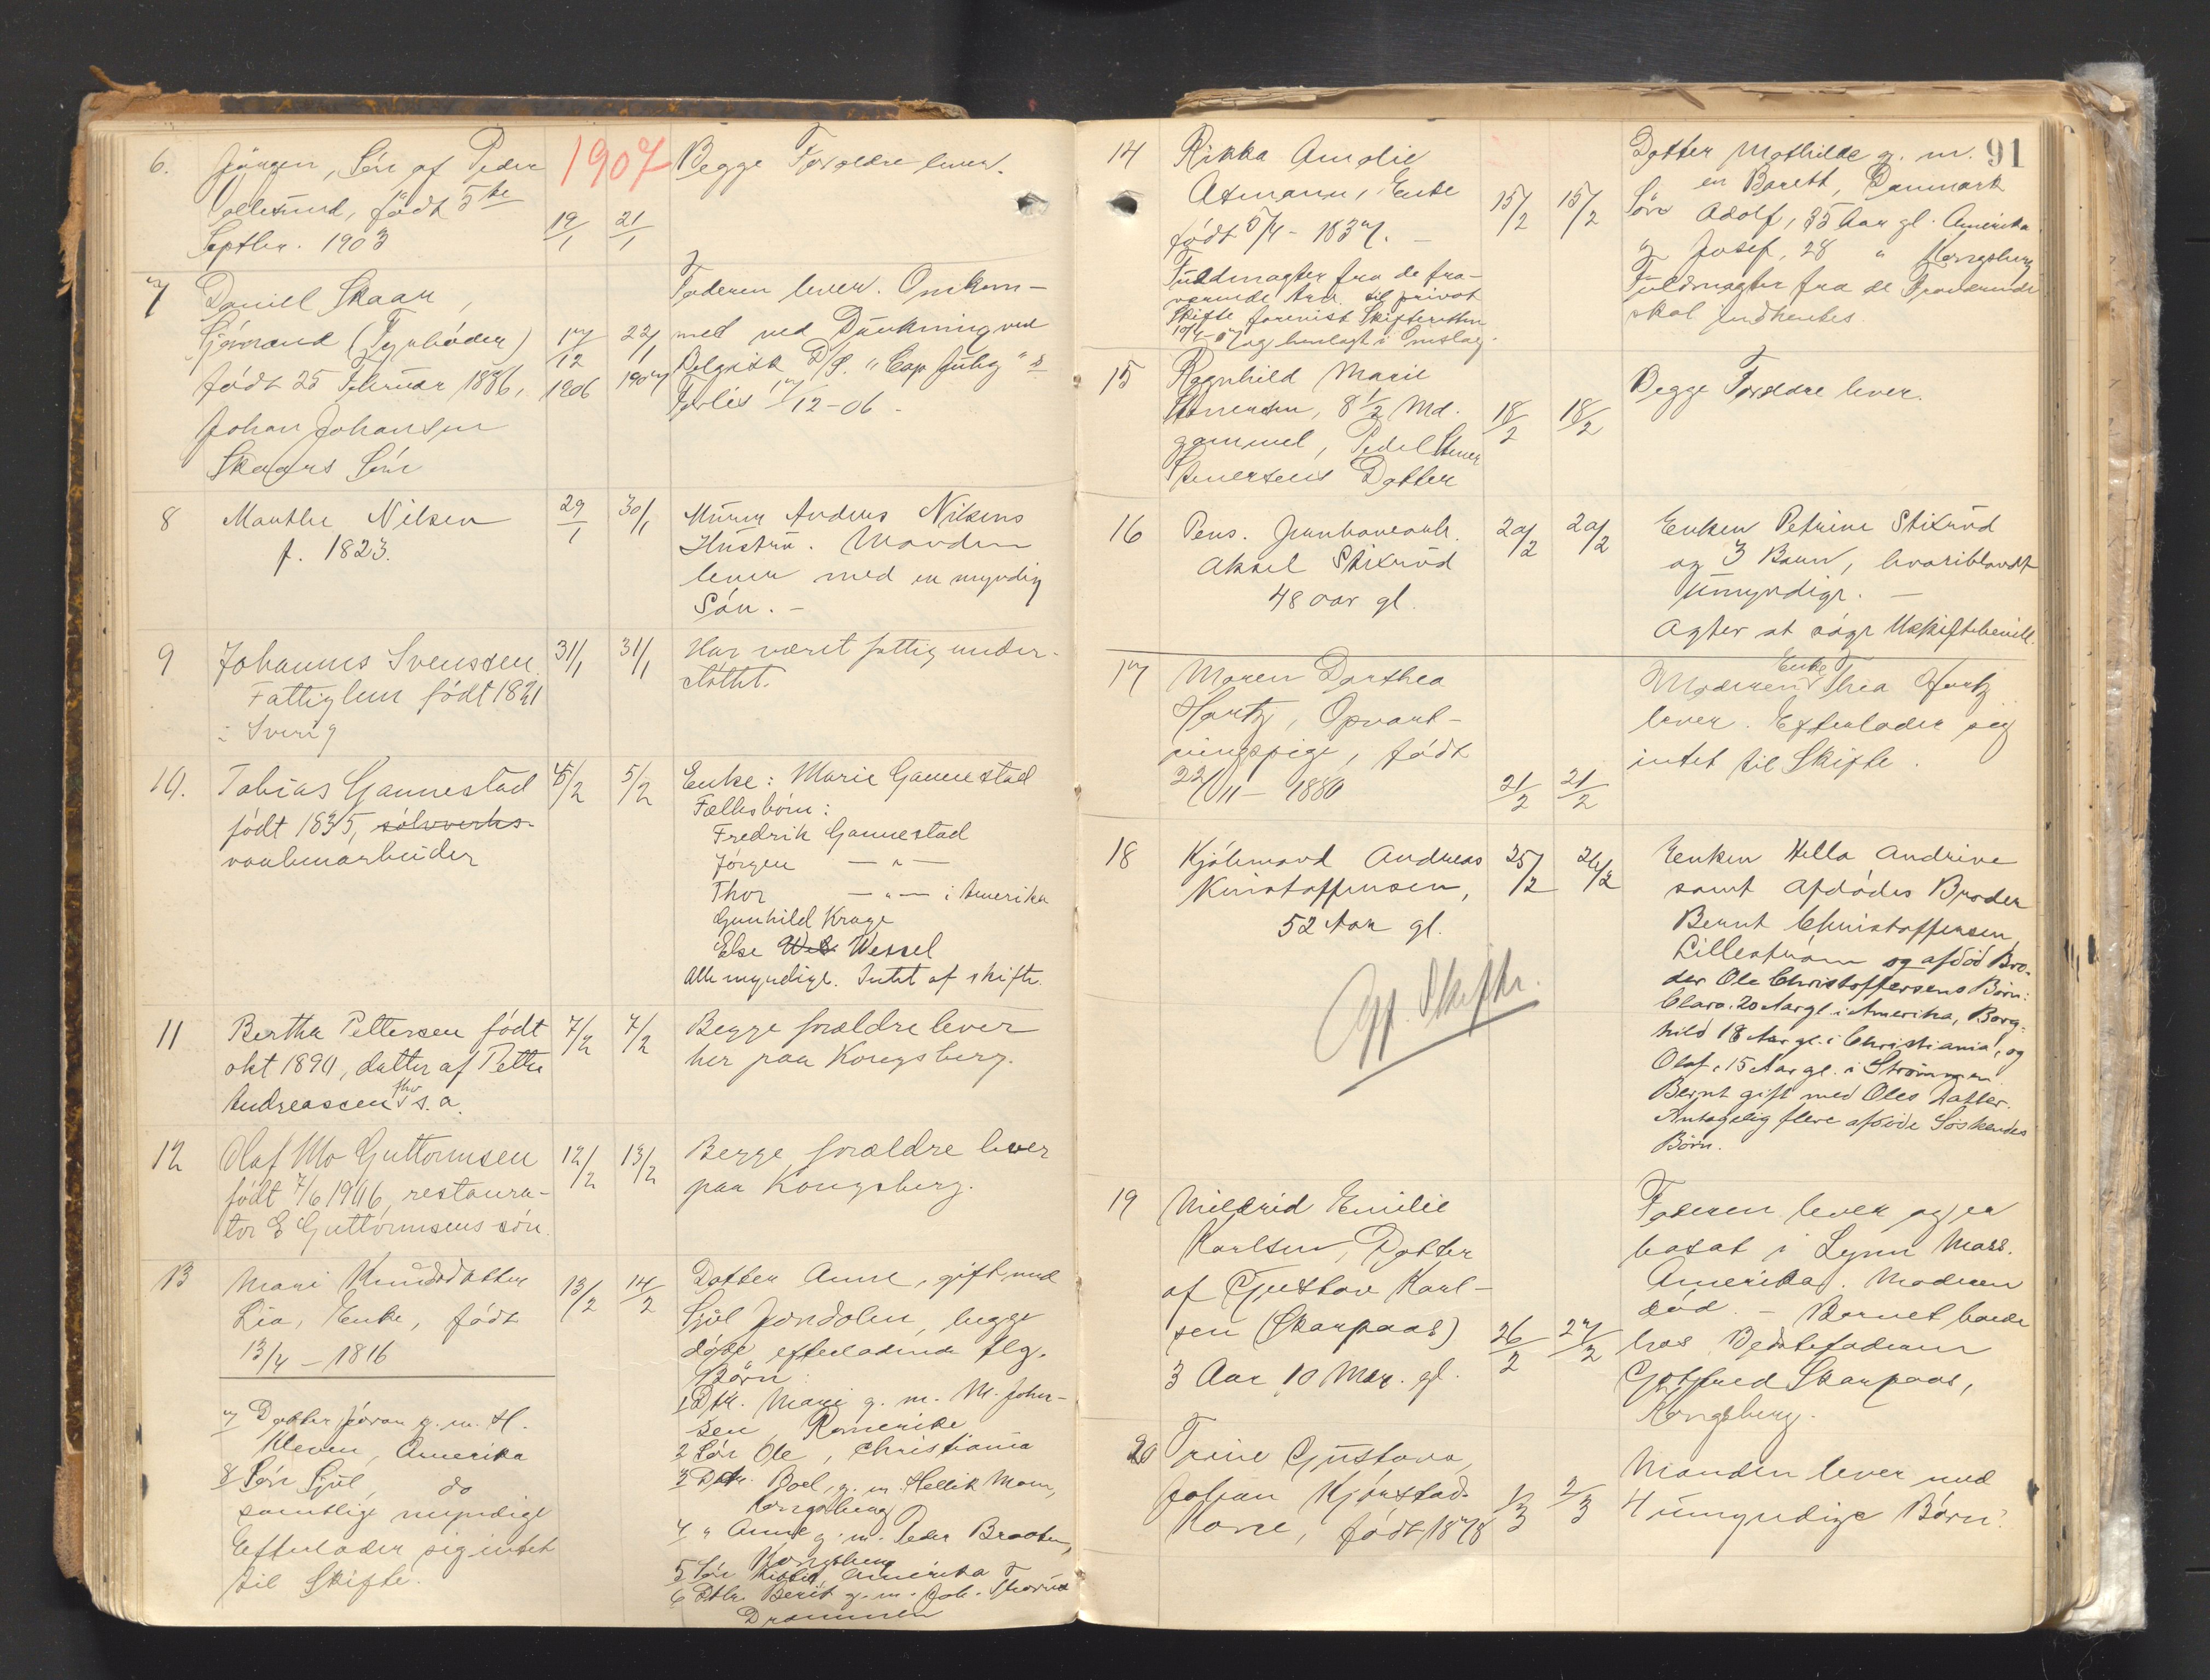 1907
6. Jörgen, Sön af Peder
Tollesund, född 5te
Septbr. 1903
19/1 21/1
Begge Forældre lever.
7 Daniel Skaar,
Sjömand (Fyrböder)
född 25 Februar 1886,
Johan Johansen
Skaars Sön
17/12 1906 22/1 1907
Faderen lever. Omkom-
met ved Dünkning ved
Belgisk D/S. "Cap Juby" s
Forlis 17/12-06.
8 Marthe Nilsen
f. 1823.
29/1 30/1
Murer Anders Nilsens
Hustru. Manden
lever med en myndig
Sön. -
9 Johannes Svenssen
Fattiglem född 1821
i Sverig
31/1 31/1
Har været fattig under-
støttet.
10. Tobias Gannestad
född 1835, sølvverks-
vaabenarbeider
5/2 5/2
Enke: Marie Gannestad
Fællesbörn:
Fredrik Gannestad
Jörgen — " —
Thor — " — i Amerika
Gunhild Krage
Else Wes Wessel
Alle myndige. Intet af skifte.
11 Bertha Pettersen födt
okt 1890, datter af Petter
Andreassen fhv s. a.
7/2 7/2
Begge forældre lever
her paa Kongsberg.
12 Olaf Mo Guttormsen
födt 7/6 1906, restaura-
tør E Guttormsens sön.
12/2 13/2
Begge forældre lever
paa Kongsberg.
13 Mari Knudsdatter
Lia, Enke, födt
13/4 - 1816
13/2 14/2
Datter Anne, gift med
Sjul Jondalen, begge
döde efterladende flg.
Börn:
1 Dtr. Mari g. m. M. John-
sen, Romerike
2 Sön Ole, Christiania
3 Dtr. Boel, g. m. Hellik Moen,
Kongsberg
4 " Anne g. m. Peder Braaten,
Kongsberg
5 Sön Kittel, Amerika
6 Dtr. Berit g. m. Joh.
Drammen
7 Datter Jöran g. m. H.
Kleven, Amerika
8 Sön Sjul, do
samtlige myndige
Efterlader sig intet
til Skifte.
91
14 Rikka Amalie
Asmann, Enke
födt 5/4 - 1837. -
Fuldmagter fra de fra-
værende Arv. til privat
Skifte forevist Skifteretten
10/4-07 og henlagt i Omslag.
15/2 15/2
Datter Mathilde g. m.
en Barett, Danmark
Sön Adolf, 35 Aar gl. Amerika
" Josef, 28 " Kongsberg
Fuldmagter fra de Fraværende
skal indhentes.
15 Ragnhild Marie
Stenersen, 8 1/2 Md.
gammel, Pedel Stener
Stenersens Datter
18/2 18/2
Begge Forældre lever.
16 Pens. Jernbanearb.
Aksel Stixrud
48 aar gl.
20/2 20/2
Enken Petrine Stixrud
og 3 Barn, hvoriblandt
Umyndige. -
Agter at söge Uskiftebevill.
17 Maren Dorthea
Hartz, Opvart-
ningspige, födt
22/11 - 1880
21/2 21/2
Moderen Enke Thea Hartz
lever. Efterlader sig
intet til Skifte.
18 Kjölemand Andreas
Kristoffersen,
52 Aar gl.
25/2 26/2
Opg. Skifte.
Enken Hella Andrine
samt Afdödes Broder
Bernt Christoffersen
Lilleström og afdöd Bro-
der Ole Christoffersens Börn:
Clara, 20 Aar gl. i Amerika, Borg-
hild 18 Aar gl. i Christiania, og
Olaf, 15 Aar gl. i Strömmen.
Bernt gift med Oles Datter.
Antagelig flere afdöde Söskendes
Börn.
19 Mildrid Emilie
Karlsen, Datter
af Gustav Karl-
sen (Skarpaas)
3 Aar 10 Mdr. gl.
26/2 27/2
Faderen lever og er
bosat i Lynn Mass.
Amerika. Moderen
död. - Barnet boede
hos Bedstefaderen
Gotfred Skarpaas,
Kongsberg.
20 Trine Gustava,
Johan Kjörstad
Kone, födt 1878
1/3 2/3
Manden lever med
4 umyndige Börn.